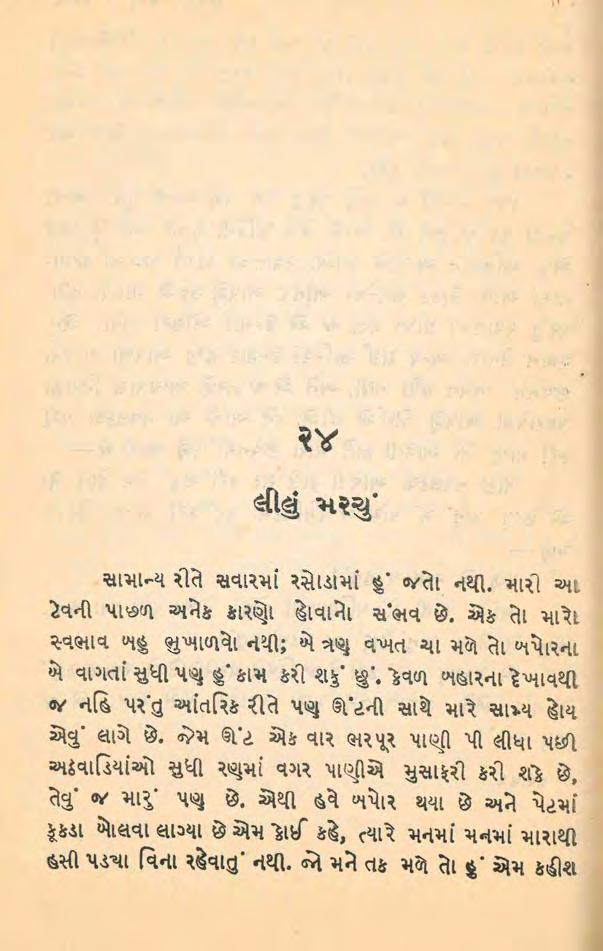 ૨૪
લીલું મરચું
સામાન્ય રીતે સવારમાં રસોડામાં હું જતો નથી. મારી આ
ટેવની પાછળ અનેક કારણો હોવાનો સંભવ છે. એક તો મારો
સ્વભાવ બહુ ભુખાળવો નથી; બે ત્રણ વખત ચા મળે તો બપોરના
બે વાગતાં સુધી પણ હું કામ કરી શકું છું. કેવળ બહારના દેખાવથી
જ નહિ પરંતુ આંતરિક રીતે પણ ઊંટની સાથે મારે સામ્ય હોય
એવું લાગે છે. જેમ ઊંટ એક વાર ભરપૂર પાણી પી લીધા પછી
અઠવાડિયાંઓ સુધી રણમાં વગર પાણીએ મુસાફરી કરી શકે છે,
તેવું જ મારું પણ છે. એથી હવે બપોર થયા છે અને પેટમાં
કૂકડા બોલવા લાગ્યા છે એમ કોઈ કહે, ત્યારે મનમાં મનમાં મારાથી
હસી પડ્યા વિના રહેવાતું નથી. જો મને તક મળે તો હું એમ કહીશ